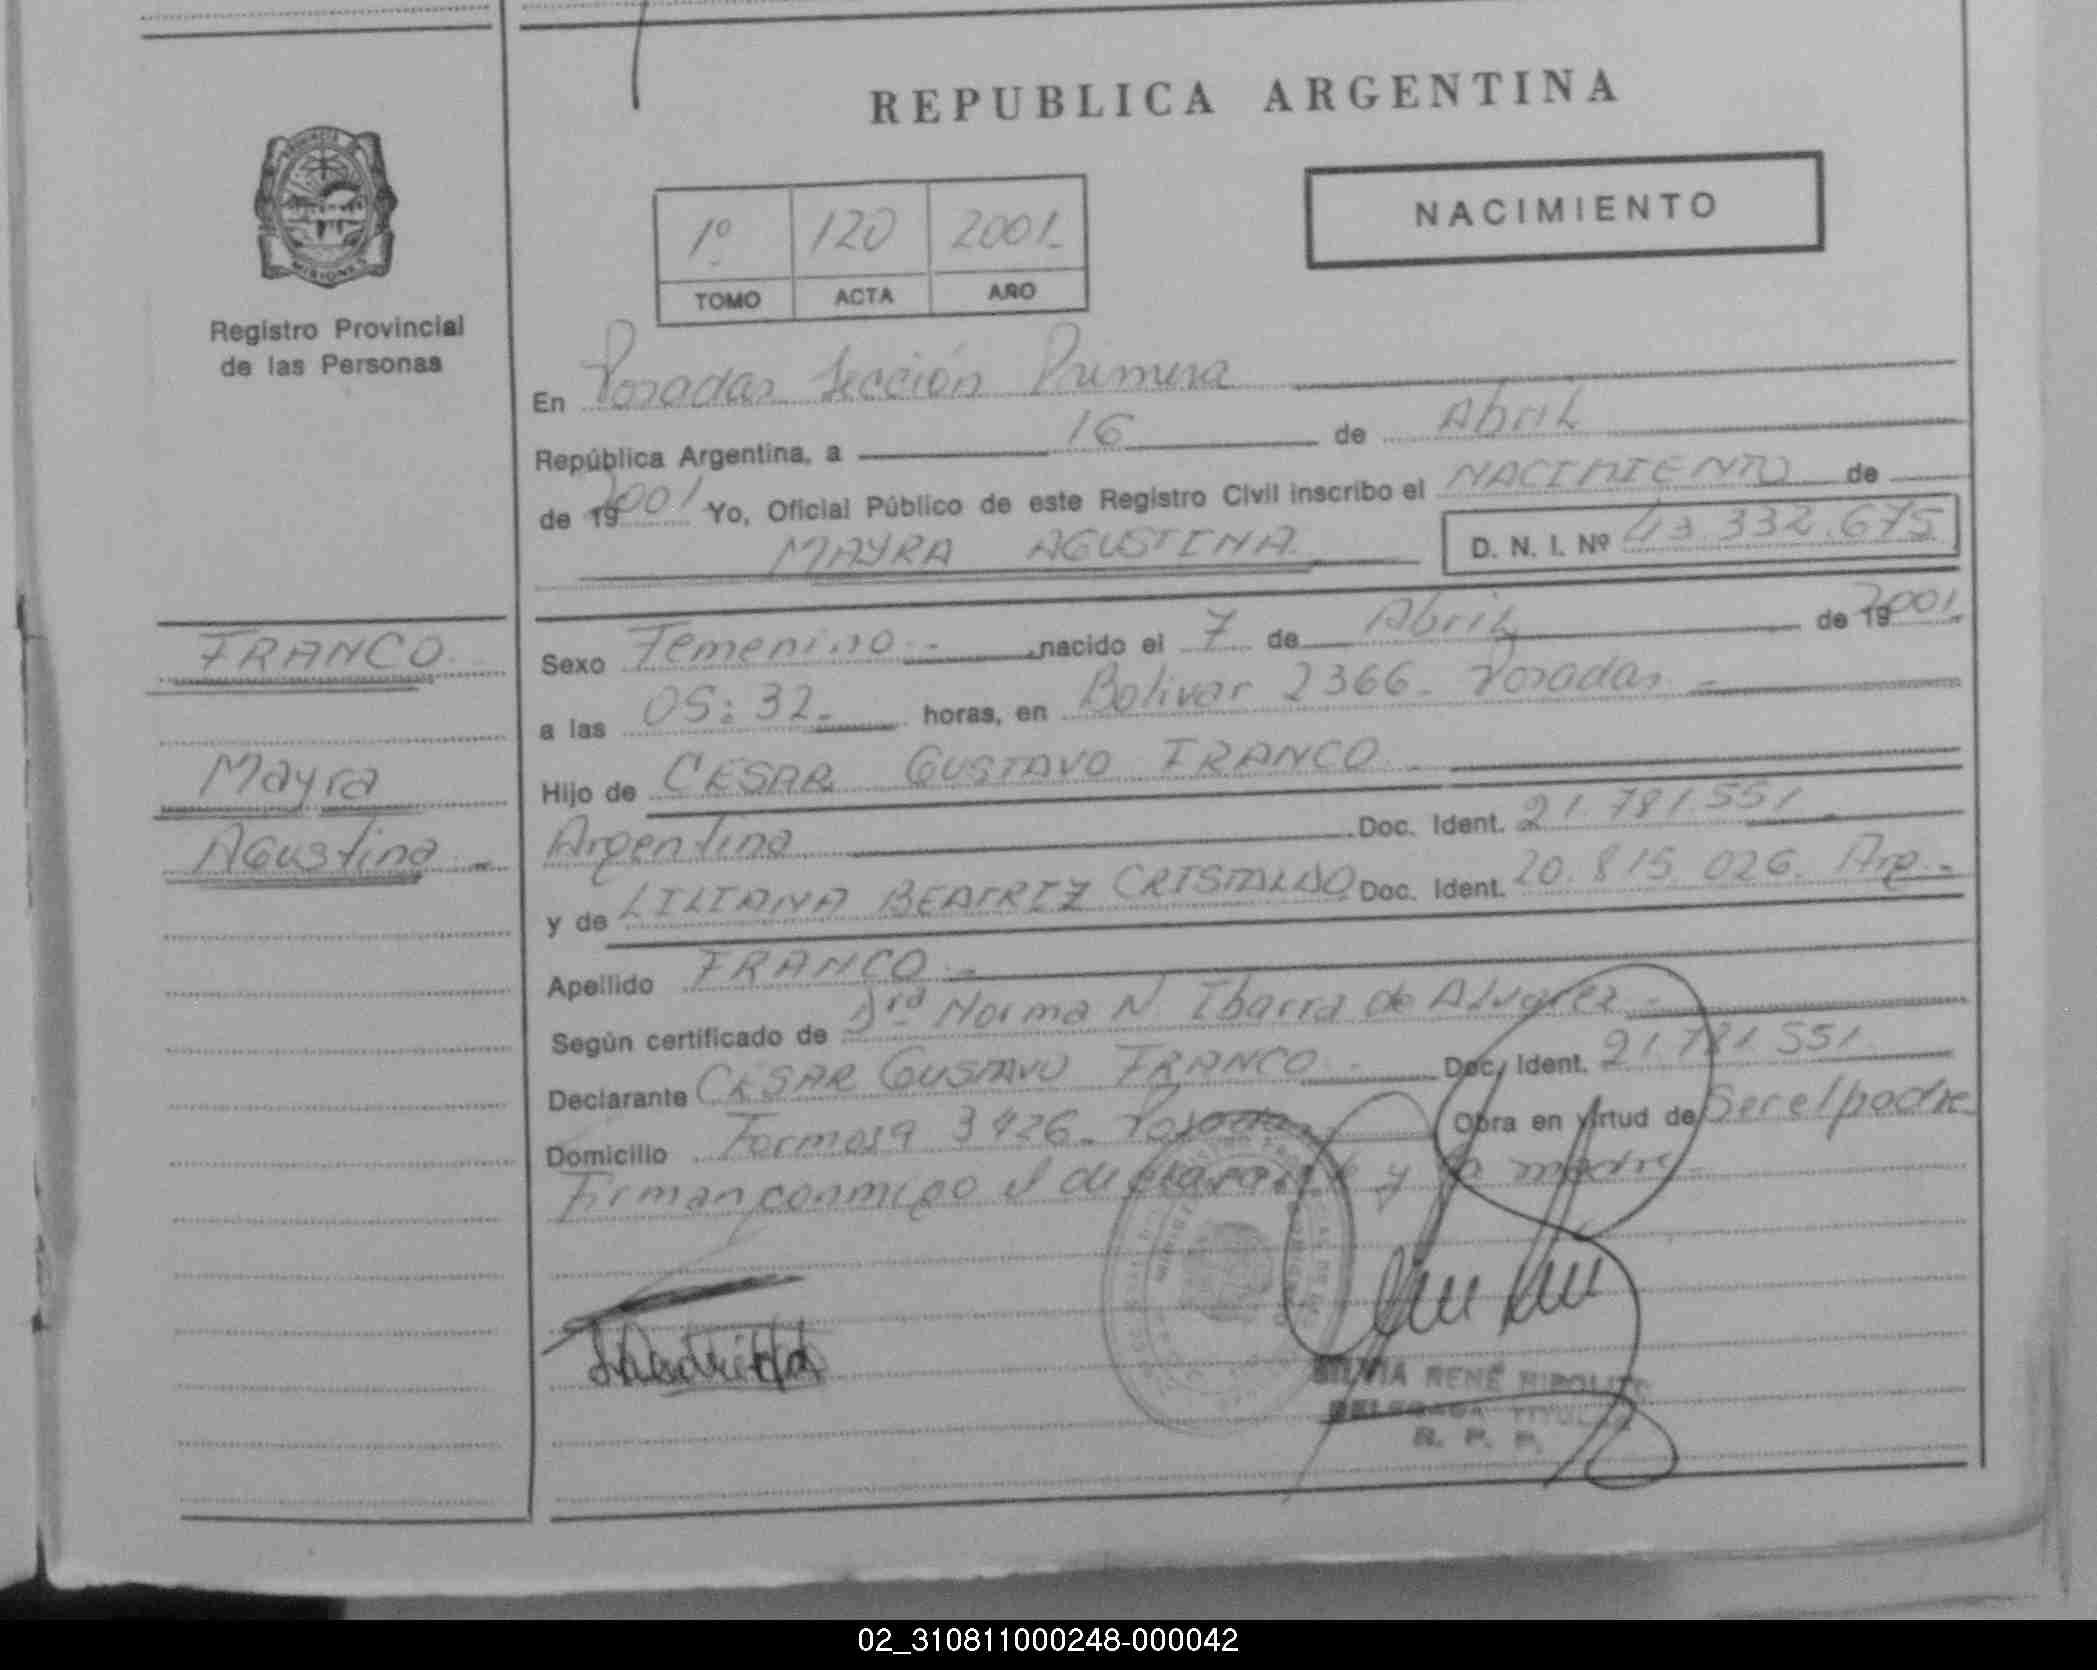 REPUBLICA ARGENTINA
NACIMIENTO
1º 120 2001.
TOMO ACTA AÑO
PROVINCIA
MISIONES
Registro Provincial
de las Personas
En Posadas Sección Primera
República Argentina, a 16 de Abril
de 19 2001 Yo, Oficial Público de este Registro Civil inscribo el NACIMIENTO de
MAYRA AGUSTINA D. N. I. Nº 43.332.675
FRANCO
Mayra
Agustina -
Sexo Femenino - nacido el 7 de Abril de 19 2001.
a las 05:32 - horas, en Bolivar 2366 - Posadas -
Hijo de CESAR GUSTAVO FRANCO -
Argentina Doc. Ident. 21.781.551 -
y de LILIANA BEATRIZ CRISTALDO Doc. Ident. 20.815.026. Arg. -
Apellido FRANCO -
Según certificado de Dra Norma N. Ibarra de Alvarez -
Declarante CESAR GUSTAVO FRANCO - Doc. Ident. 21.781.551
Domicilio Formosa 3426 - Posadas Obra en virtud de Ser el padre
Firman conmigo el declarante y la madre -
SILVIA RENÉ RIPOLI
DELEGADA TITULAR
R. P. P.
02_310811000248-000042